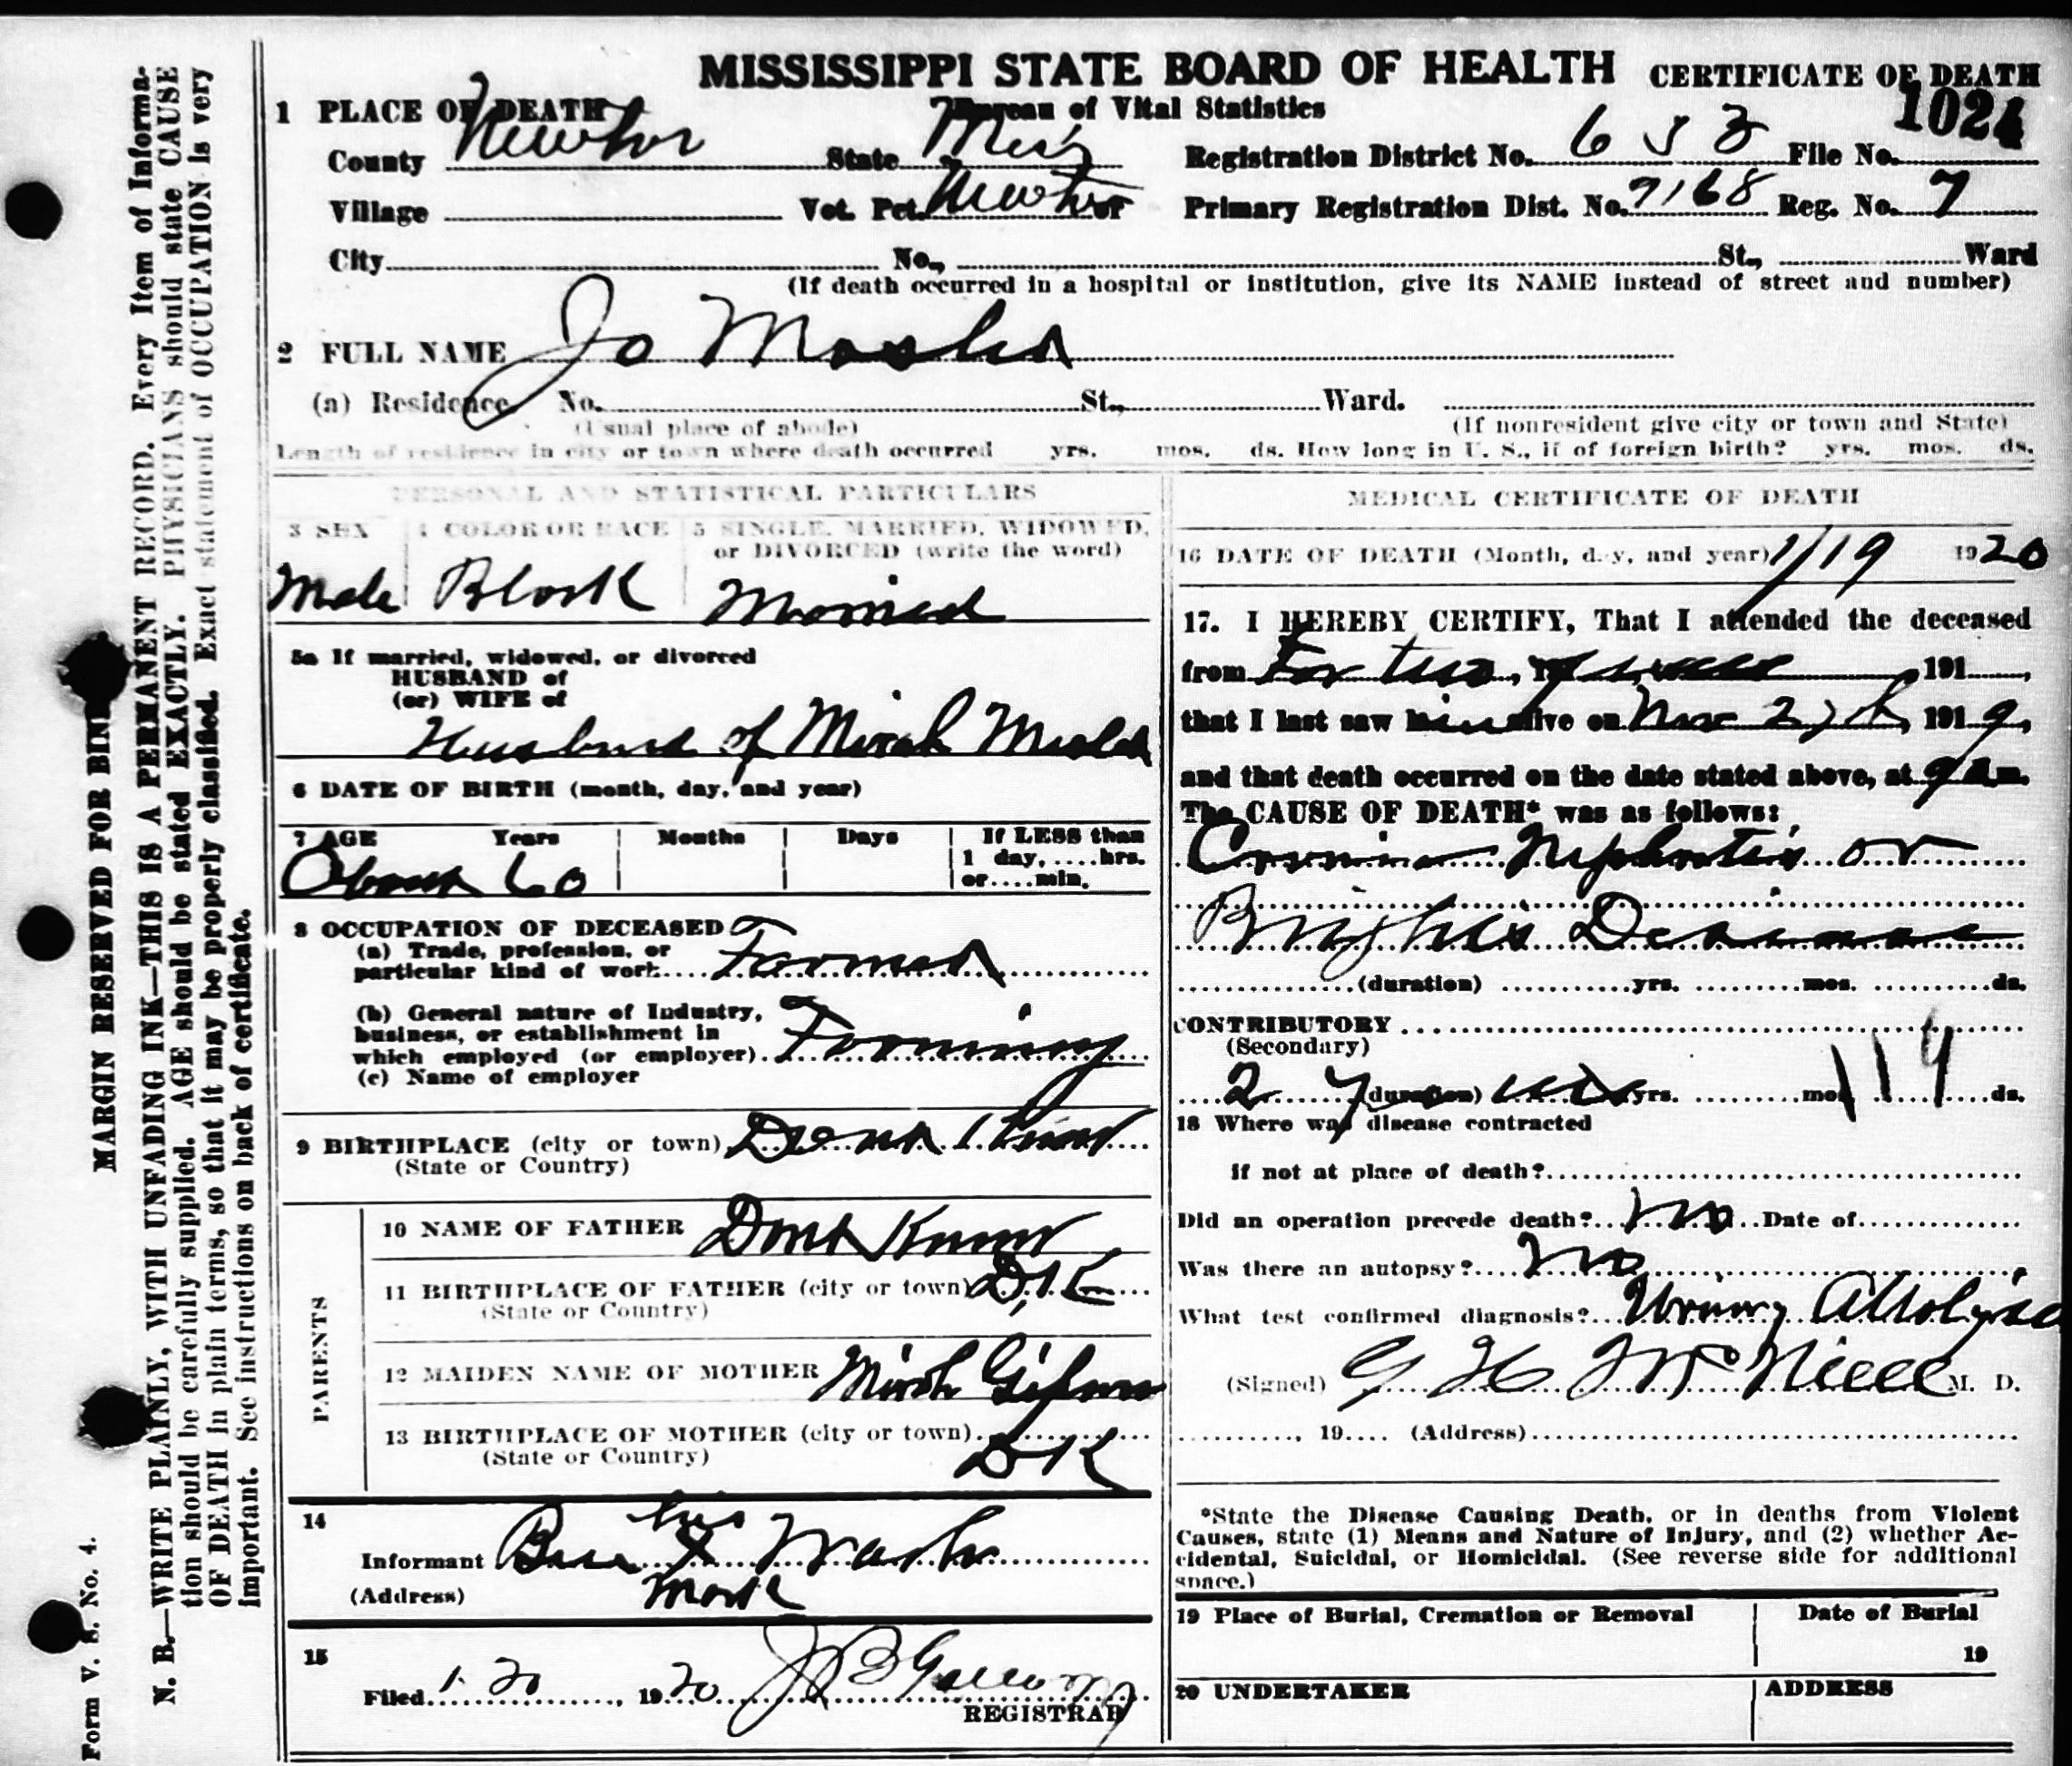 MISSISSIPPI STATE BOARD OF HEALTH CERTIFICATE OF DEATH
1 PLACE OF DEATH Bureau of Vital Statistics 1024
County Newton State Miss Registration District No. 653 File No.
Village Vot. Pct. Newton Primary Registration Dist. No. 7168 Reg. No. 7
City No., St., Ward
(If death occurred in a hospital or institution, give its NAME instead of street and number)
2 FULL NAME Jo
(a) Residence No. St., Ward.
(Usual place of abode) (If nonresident give city or town and State)
Length of residence in city or town where death occurred yrs. mos. ds. How long in U. S., if of foreign birth? yrs. mos. ds.
PERSONAL AND STATISTICAL PARTICULARS
3 SEX 4 COLOR OR RACE 5 SINGLE, MARRIED, WIDOWED,
or DIVORCED (write the word)
Male Black Married
5a If married, widowed, or divorced
HUSBAND of
(or) WIFE of
Husband of
6 DATE OF BIRTH (month, day, and year)
7 AGE Years Months Days If LESS than
1 day, ....hrs.
or....min.
About 60
8 OCCUPATION OF DECEASED
(a) Trade, profession, or
particular kind of work.... Farmer
(b) General nature of Industry,
business, or establishment in
which employed (or employer). Farming
(c) Name of employer
9 BIRTHPLACE (city or town) Dont Know
(State or Country)
PARENTS
10 NAME OF FATHER Dont Know
11 BIRTHPLACE OF FATHER (city or town) D.K
(State or Country)
12 MAIDEN NAME OF MOTHER
13 BIRTHPLACE OF MOTHER (city or town)
(State or Country) DK
14 his
Informant X Wash
(Address) mark
15
Filed 1 20, 1920 J B
REGISTRAR
MEDICAL CERTIFICATE OF DEATH
16 DATE OF DEATH (Month, day, and year) 1/19 1920
17. I HEREBY CERTIFY, That I attended the deceased
from For two, 191 ,
that I last saw him alive on Nov 27th, 1919,
and that death occurred on the date stated above, at 9 am.
The CAUSE OF DEATH* was as follows:
Nephritis or
Brights Disease
(duration) yrs. mos. ds.
CONTRIBUTORY
(Secondary)
2 (duration) yrs. mos. 119 ds.
18 Where was disease contracted
if not at place of death?
Did an operation precede death? no Date of
Was there an autopsy? no
What test confirmed diagnosis?
(Signed) G H McNeill M. D.
, 19.... (Address)
*State the Disease Causing Death, or in deaths from Violent
Causes, state (1) Means and Nature of Injury, and (2) whether Ac-
cidental, Suicidal, or Homicidal. (See reverse side for additional
space.)
19 Place of Burial, Cremation or Removal Date of Burial
19
20 UNDERTAKER ADDRESS
MARGIN RESERVED FOR BIND
N. B.—WRITE PLAINLY, WITH UNFADING INK—THIS IS A PERMANENT RECORD. Every Item of Informa-
tion should be carefully supplied. AGE should be stated EXACTLY. PHYSICIANS should state CAUSE
OF DEATH in plain terms, so that it may be properly classified. Exact statement of OCCUPATION is very
important. See instructions on back of certificate.
Form V. S. No. 4.